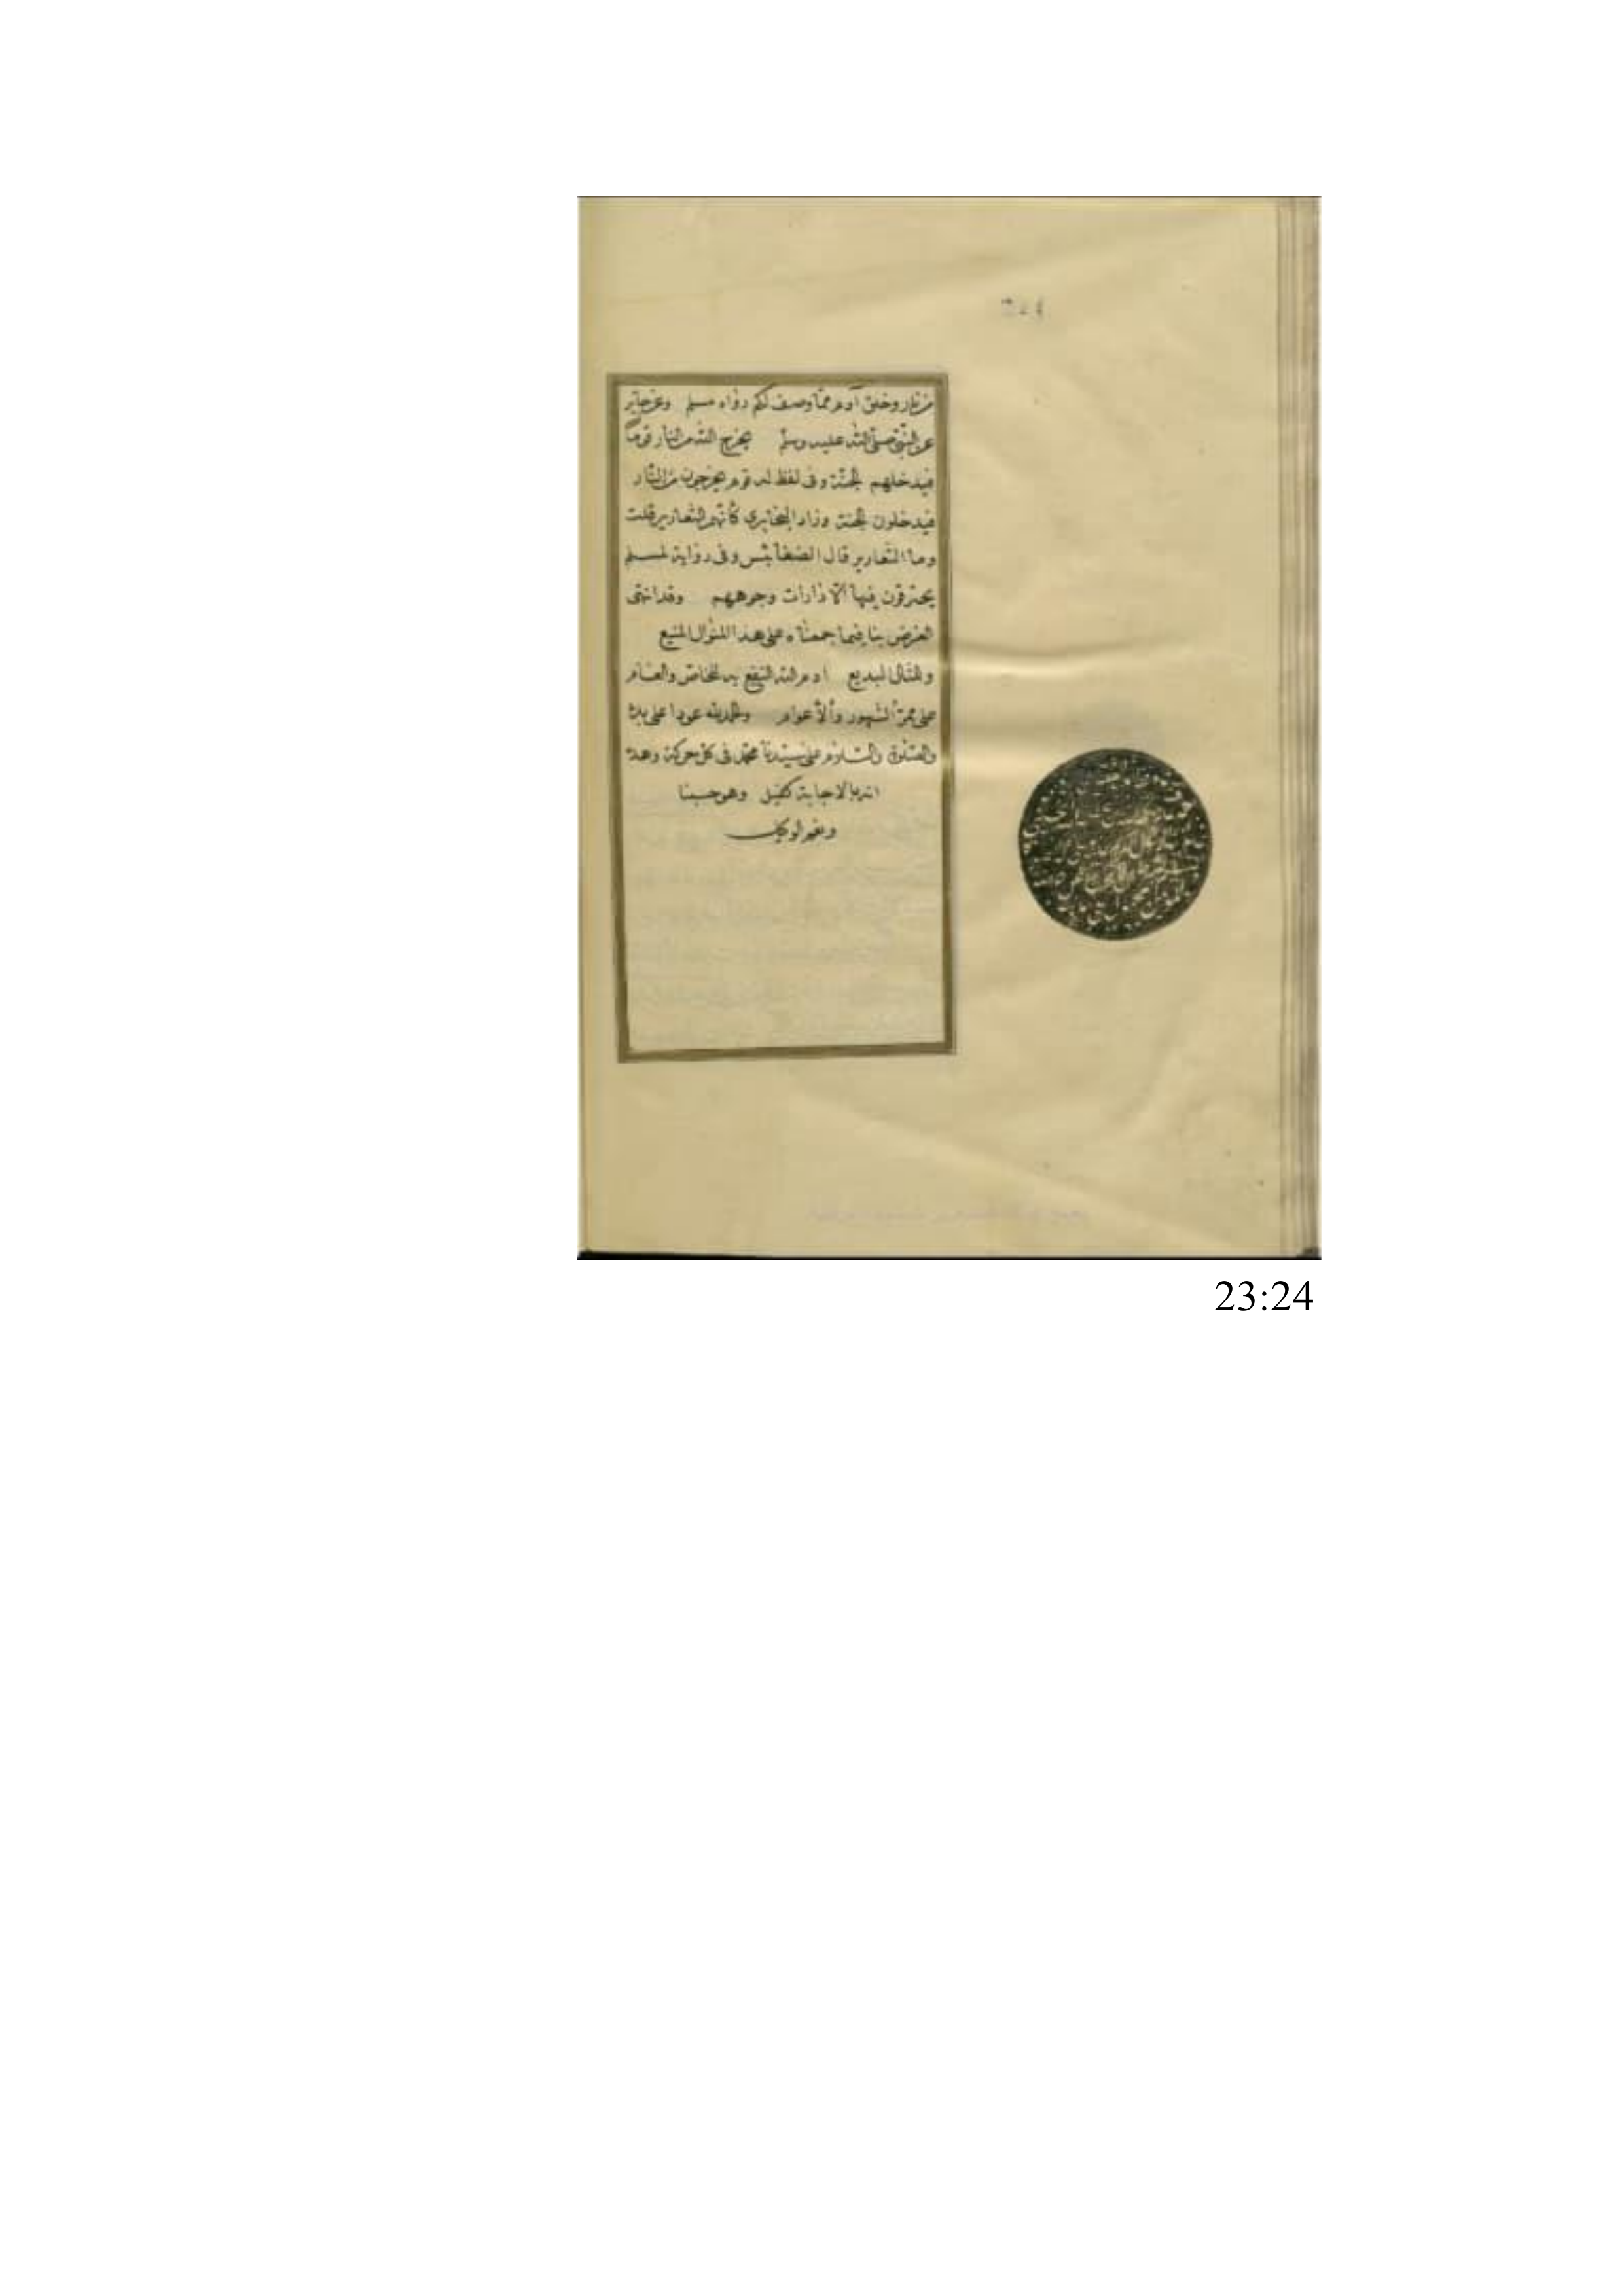 من نار وخلق آدم مما وصف لكم رواه مسلم وعن جابر
عن النبي صلى الله عليه وسلم يخرج الله من النار قوما
فيدخلهم الجنة وفى لفظ له قوم يخرجون من النار
فيدخلون الجنة وزاد البخاري كأنهم الثعارير قلت
وما الثعارير قال الضغابيس وفى رواية لمسلم
يحترقون فيها الا دارات وجوههم وقد انتهى
الغرض بنا فيما جمعناه على هذا المنوال المنيع
والمثال البديع ادام الله النفع به للخاص والعام
على ممر الشهور والأعوام والحمد لله عودا على بدء
والصلوة والسلام على سيدنا محمد فى كل حركة وهدء
انه بالاجابة كفيل وهو حسبنا
ونعم الوكيل
23:24